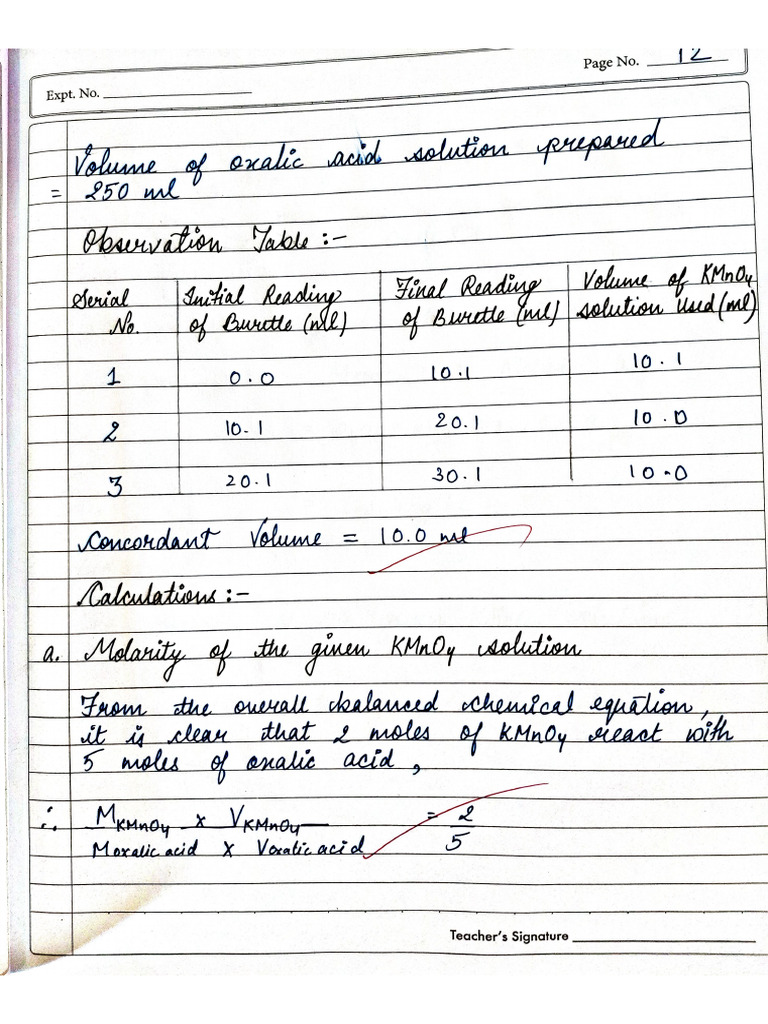 Page No. 12
Expt. No.
Volume of oxalic acid solution prepared
= 250 ml
Observation Table :-
Serial No. | Initial Reading of Burette (ml) | Final Reading of Burette (ml) | Volume of KMnO4 solution used (ml)
1 | 0.0 | 10.1 | 10.1
2 | 10.1 | 20.1 | 10.0
3 | 20.1 | 30.1 | 10.0
Concordant Volume = 10.0 ml
Calculations :-
a. Molarity of the given KMnO4 solution
From the overall balanced chemical equation,
it is clear that 2 moles of KMnO4 react with
5 moles of oxalic acid,
∴ MKMnO4 x VKMnO4 = 2
Moxalic acid x Voxalic acid 5
Teacher's Signature